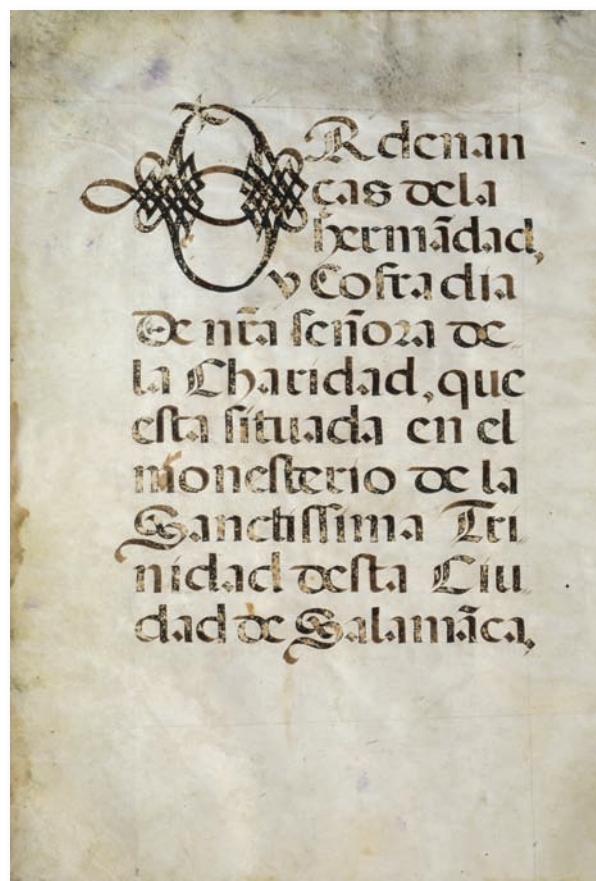 ORdenan
ças dela
hermãdad,
y Cofradia
De nr̃a señora de
la Charidad, que
esta situada en el
monesterio de la
Sanctissima Tri
nidad desta Ciu
dad de Salamãca,